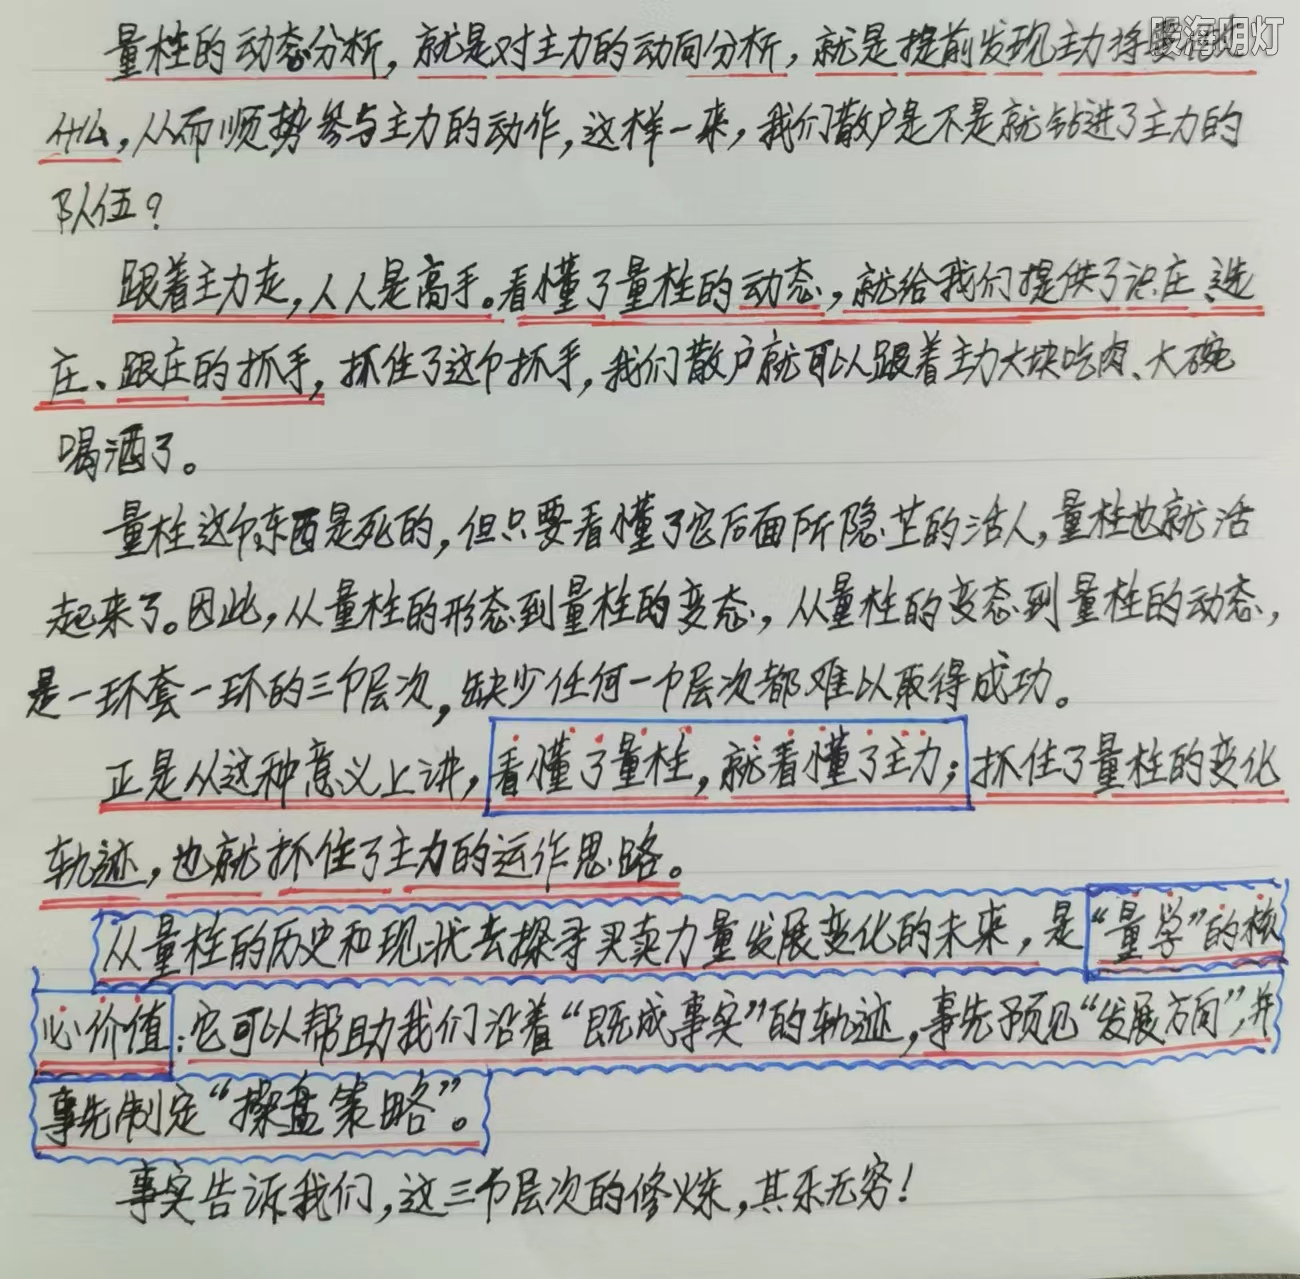 股海明灯
量柱的动态分析，就是对主力的动向分析，就是提前发现主力将要
什么，从而顺势参与主力的动作，这样一来，我们散户是不是就钻进了主力的
队伍？
跟着主力走，人人是高手。看懂了量柱的动态，就给我们提供了识庄、选
庄、跟庄的抓手，抓住了这个抓手，我们散户就可以跟着主力大块吃肉、大碗
喝酒了。
量柱这个东西是死的，但只要看懂了它后面所隐芷的活人，量柱也就活
起来了。因此，从量柱的形态到量柱的变态，从量柱的变态到量柱的动态，
是一环套一环的三个层次，缺少任何一个层次都难以取得成功。
正是从这种意义上讲，看懂了量柱，就看懂了主力；抓住了量柱的变化
轨迹，也就抓住了主力的运作思路。
从量柱的历史和现状去探寻买卖力量发展变化的未来，是“量学”的核
心价值：它可以帮助我们沿着“既成事实”的轨迹，事先预见“发展方向”，并
事先制定“操盘策略”。
事实告诉我们，这三个层次的修炼，其乐无穷！